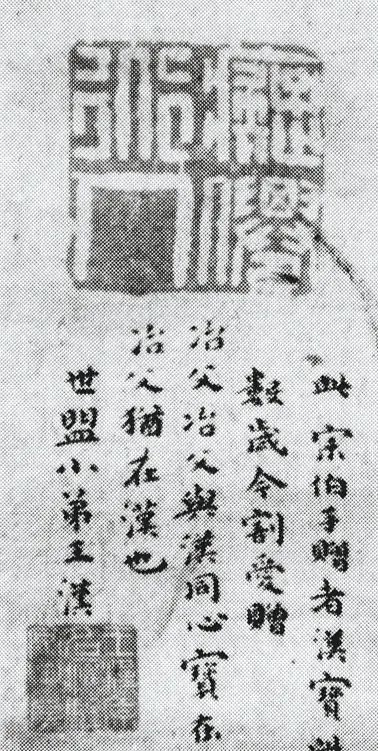 此宋伯子贈者漢寶
數歲今割愛贈
冶父冶父與漢同心寶在
冶父猶在漢也
世盟小弟王漢